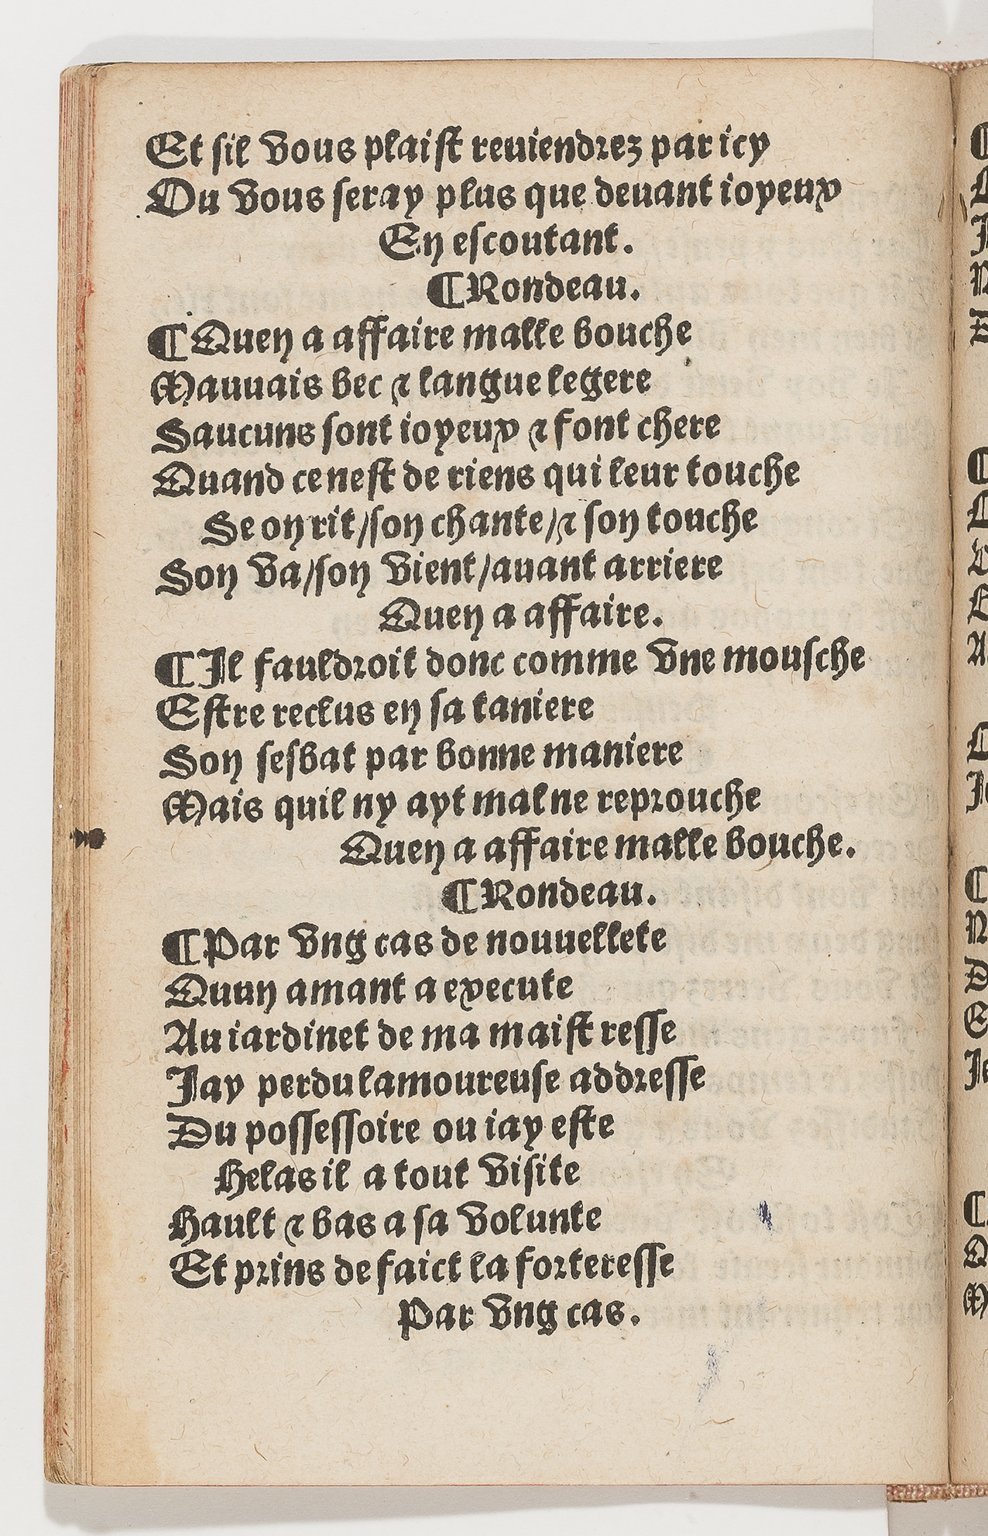 Et sil vous plaist reuiendrez par icy
Ou vous seray plus que deuant ioyeux
En escoutant.
¶Rondeau.
¶Quen a affaire malle bouche
Mauuais bec ⁊ langue legere
Saucuns sont ioyeux ⁊ font chere
Quand ce nest de riens qui leur touche
Se on rit/son chante/⁊ son touche
Son va/son vient/auant arriere
Quen a affaire.
¶Il fauldroit donc comme vne mousche
Estre reclus en sa taniere
Son sesbat par bonne maniere
Mais quil ny ayt mal ne reprouche
Quen a affaire malle bouche.
¶Rondeau.
¶Par vng cas de nouuellete
Quun amant a execute
Au iardinet de ma maistresse
Jay perdu lamoureuse addresse
Du possessoire ou iay este
Helas il a tout visite
Hault ⁊ bas a sa volunte
Et prins de faict la forteresse
Par vng cas.